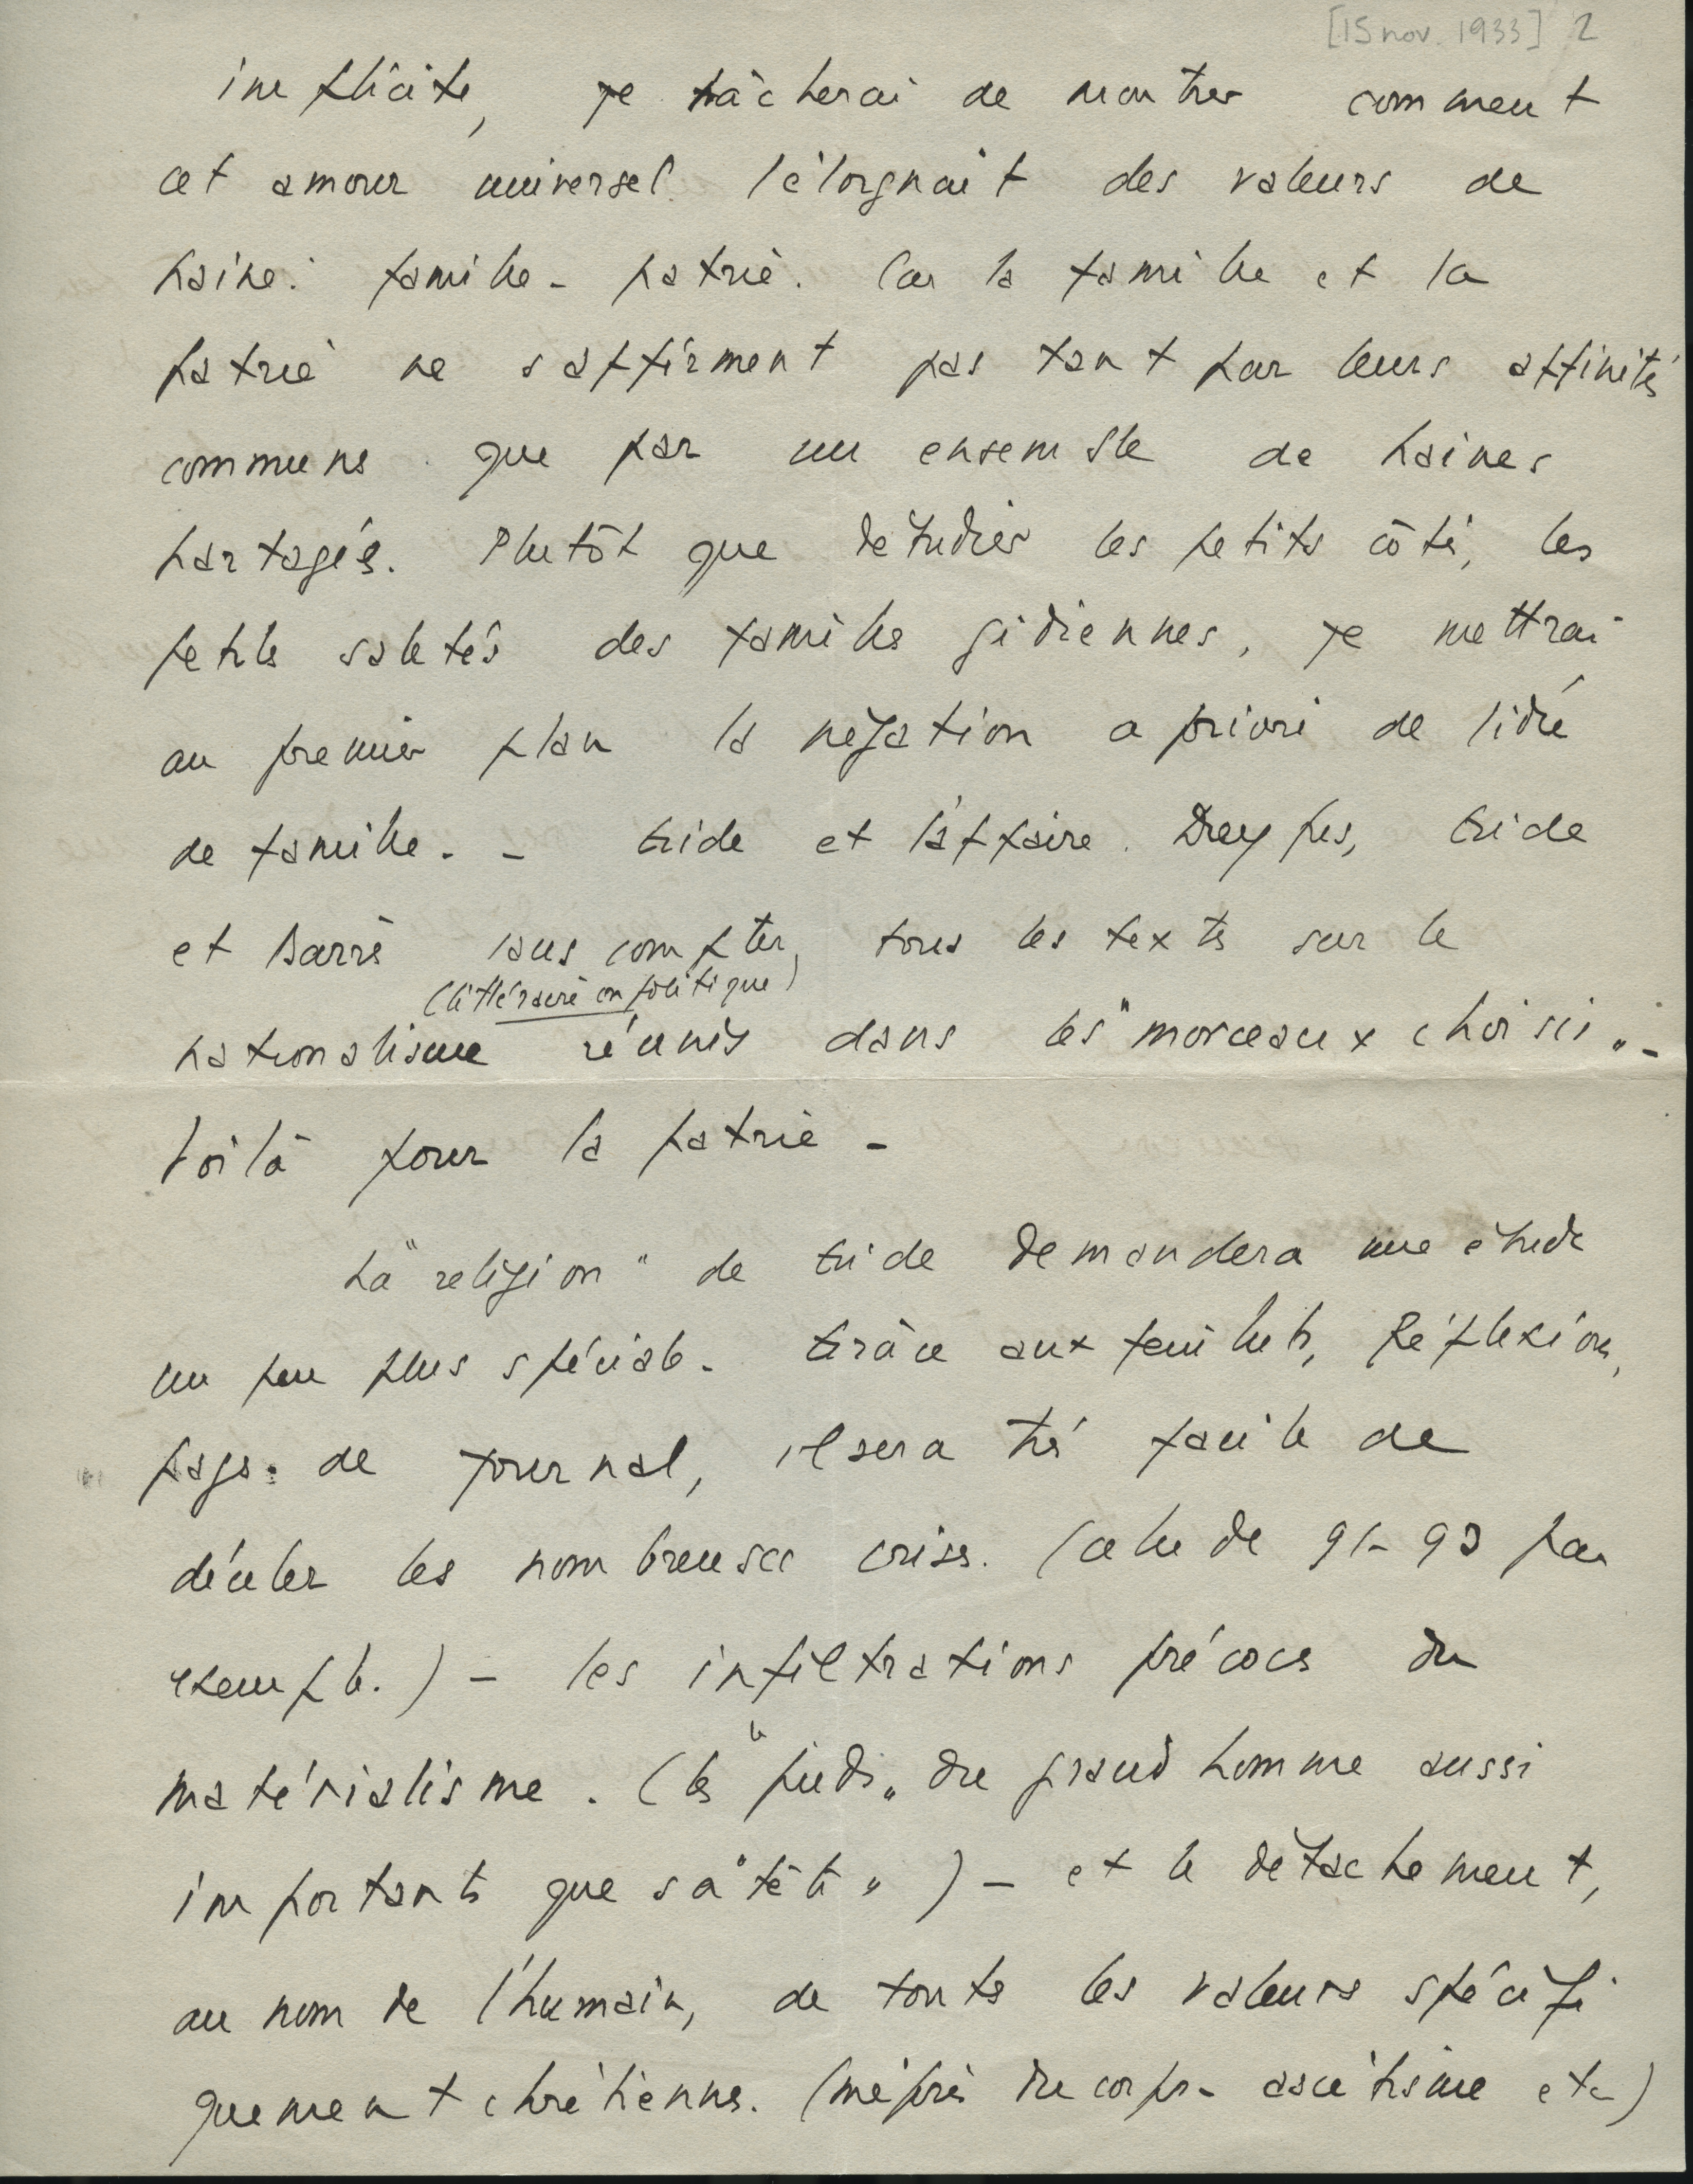 [15 nov. 1933] 2
implicite, je tâcherai de montrer comment
cet amour universel l'éloignait des valeurs de
haine : famille - patrie. Car la famille et la
patrie ne s'affirment pas tant par leurs affinités
communes que par un ensemble de haines
partagées. Plutôt que d'étudier les petits côtés, les
petites saletés des familles gidiennes, je mettrai
au premier plan la négation a priori de l'idée
de famille. - Gide et l'affaire Dreyfus, Gide
et Barrès sans compter, tous les textes sur le
(littéraire ou politique)
nationalisme réunis dans les "morceaux choisis". -
Voilà pour la patrie -
La "religion" de Gide demandera une étude
un peu plus spéciale. Grâce aux feuillets, Réflexions,
pages de journal, il sera très facile de
déceler les nombreuses crises. (celle de 91-93 par
exemple.) - les infiltrations précoces du
matérialisme. (les "pieds" du grand homme aussi
importants que sa "tête") - et le détachement,
au nom de l'humain, de toutes les valeurs spécifi
quement chrétiennes. (mépris du corps - ascétisme etc)